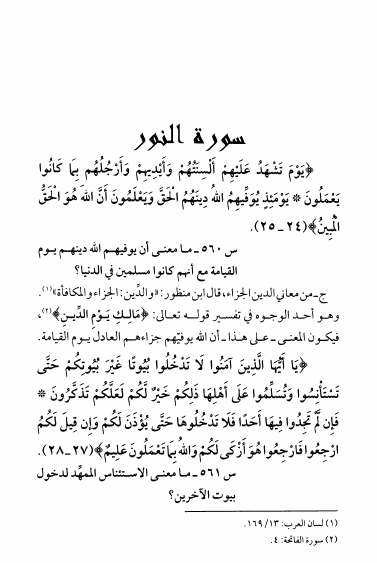 سورة النور
﴿يَوْمَ تَشْهَدُ عَلَيْهِمْ أَلْسِنَتُهُمْ وَأَيْدِيهِمْ وَأَرْجُلُهُم بِمَا كَانُوا
يَعْمَلُونَ * يَوْمَئِذٍ يُوَفِّيهِمُ اللهُ دِينَهُمُ الْحَقَّ وَيَعْلَمُونَ أَنَّ اللهَ هُوَ الْحَقُّ
الْمُبِينُ﴾(٢٤ـ٢٥).
س ٥٦٠ـ ما معنى أن يوفيهم الله دينهم يوم
القيامة مع أنهم كانوا مسلمين في الدنيا؟
ج ـ من معاني الدين الجزاء، قال ابن منظور: «والدِّين: الجزاء والمكافأة»(١).
وهو أحد الوجوه في تفسير قوله تعالى: ﴿مَالِكِ يَوْمِ الدِّينِ﴾(٢)،
فيكون المعنى ـ على هذا ـ أن الله يوفّيهم جزاءهم العادل يوم القيامة.
﴿يَا أَيُّهَا الَّذِينَ آمَنُوا لَا تَدْخُلُوا بُيُوتًا غَيْرَ بُيُوتِكُمْ حَتَّى
تَسْتَأْنِسُوا وَتُسَلِّمُوا عَلَى أَهْلِهَا ذَلِكُمْ خَيْرٌ لَّكُمْ لَعَلَّكُمْ تَذَكَّرُونَ *
فَإِن لَّمْ تَجِدُوا فِيهَا أَحَدًا فَلَا تَدْخُلُوهَا حَتَّى يُؤْذَنَ لَكُمْ وَإِن قِيلَ لَكُمُ
ارْجِعُوا فَارْجِعُوا هُوَ أَزْكَى لَكُمْ وَاللهُ بِمَا تَعْمَلُونَ عَلِيمٌ﴾(٢٧ـ٢٨).
س ٥٦١ـ ما معنى الاستئناس الممهِّد لدخول
بيوت الآخرين؟
(١) لسان العرب: ١٣/ ١٦٩.
(٢) سورة الفاتحة: ٤.